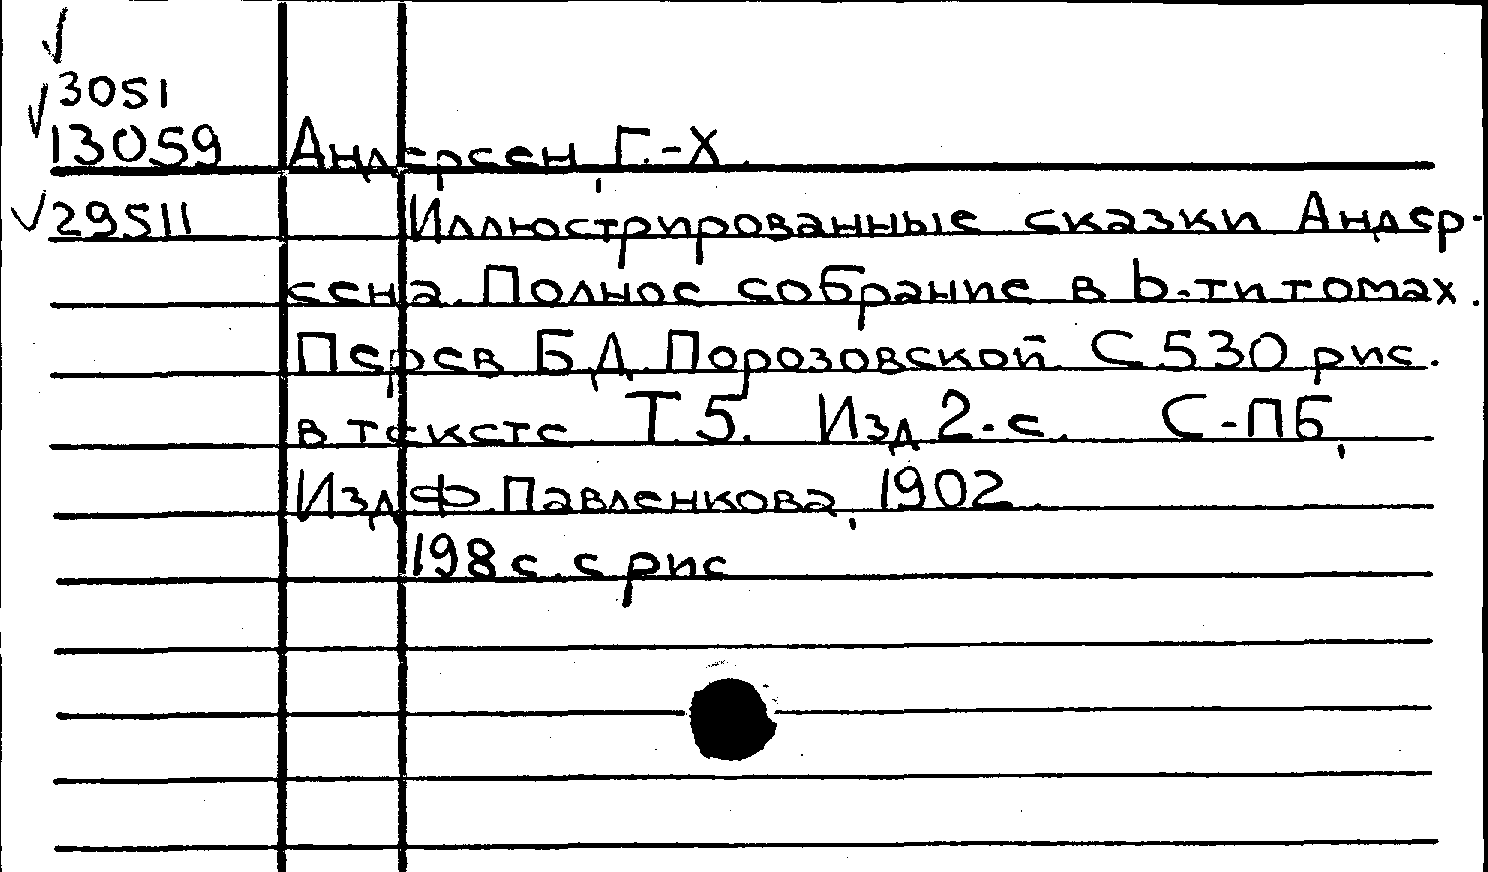 3051
13059 Андерсен, Г.-Х.
29511 Иллюстрированные сказки Андер-
сена. Полное собрание в 6-ти томах.
Перев Б.Д. Порозовской. С 530 рис.
в тексте. Т.5. Изд 2-е. С-ПБ,
Изд Ф.Павленкова, 1902.
198 с. с рис